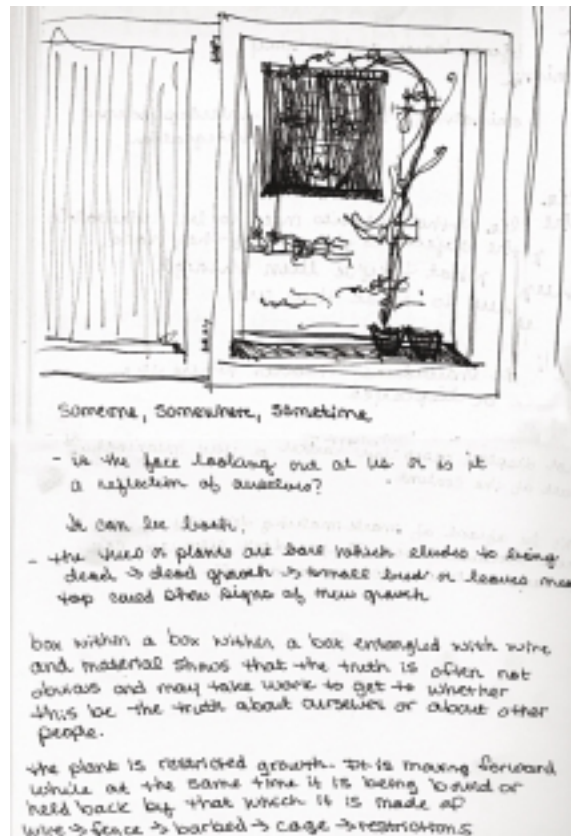 Someone, Somewhere, Sometime
- is the face looking out at us or is it
a reflection of ourselves?
It can be both.
- the or plants are bare which eludes to being
dead → dead growth → small bud or leaves near
top could show signs of new growth
box within a box within a box entangled with wire
and material shows that the truth is often not
obvious and may take work to get to whether
this be the truth about ourselves or about other
people.
the plant is restricted growth. It is moving forward
while at the same time it is being bound or
held back by that which it is made of
wire → fence → barbed → cage → restrictions